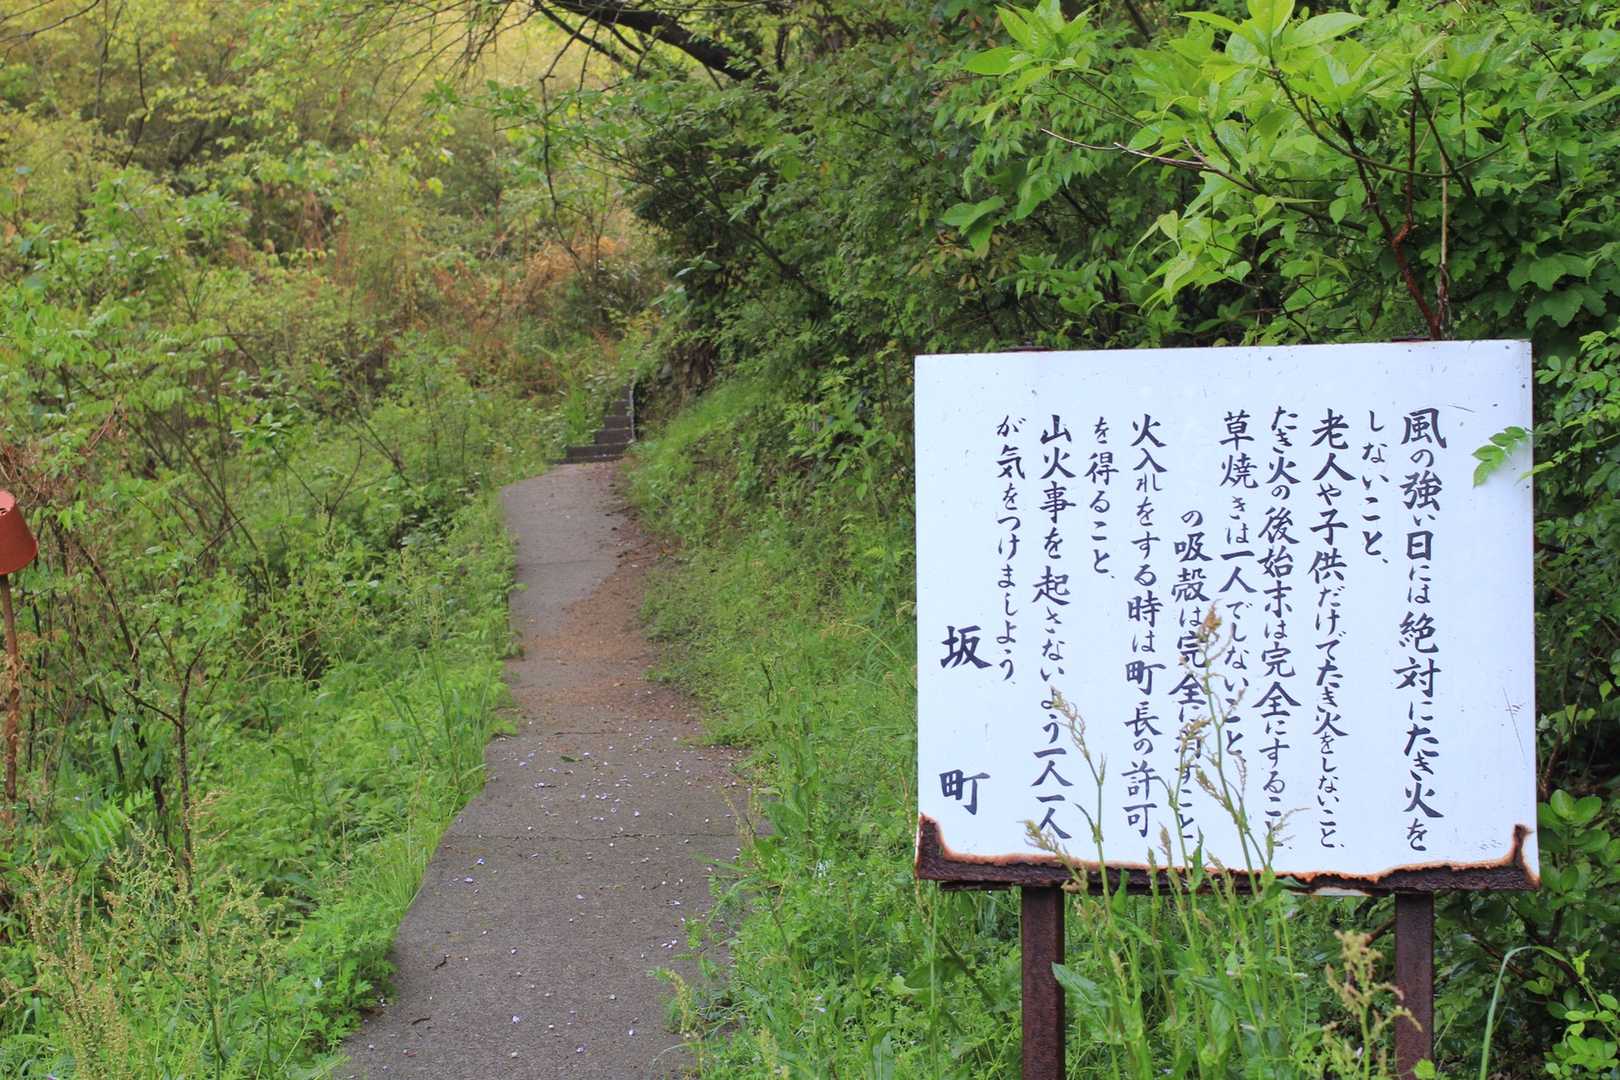 風の強い日には絶対にたき火を
しないこと、
老人や子供だけでたき火をしないこと、
たき火の後始末は完全にすること、
草焼きは一人でしないこと
の吸殻は完全に消すこと
火入れをする時は町長の許可
を得ること、
山火事を起さないよう一人一人
が気をつけましよう、
坂町